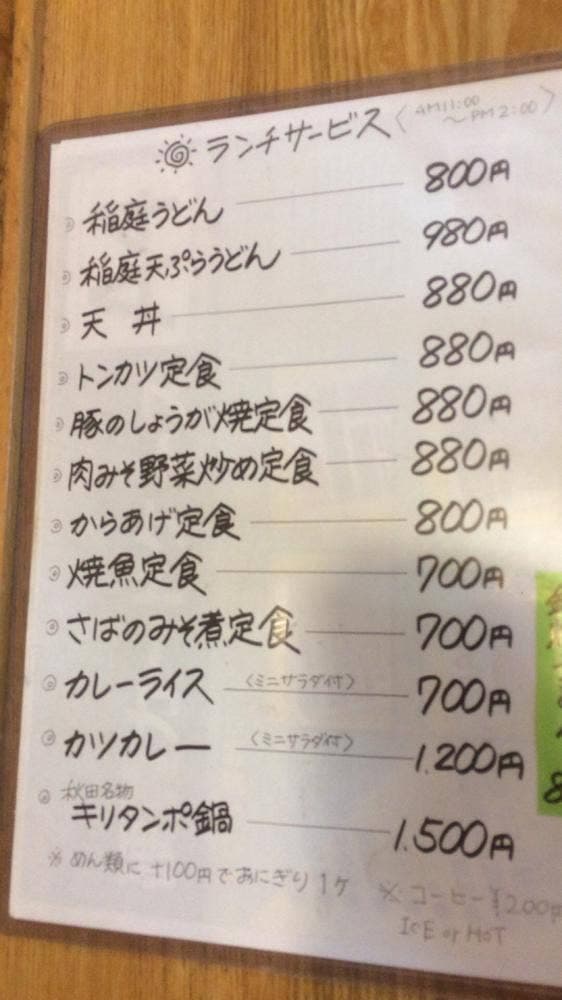 ランチサービス〈AM11:00
～PM2:00〉
稲庭うどん 800円
稲庭天ぷらうどん 980円
天 丼 880円
トンカツ定食 880円
豚のしょうが焼定食 880円
肉みそ野菜炒め定食 880円
からあげ定食 800円
焼魚定食 700円
さばのみそ煮定食 700円
カレーライス 〈ミニサラダ付〉 700円
カツカレー 〈ミニサラダ付〉 1.200円
秋田名物
キリタンポ鍋 1.500円
※ めん類に +100円でおにぎり1ケ
※ コーヒー ¥200円
ICE or HOT